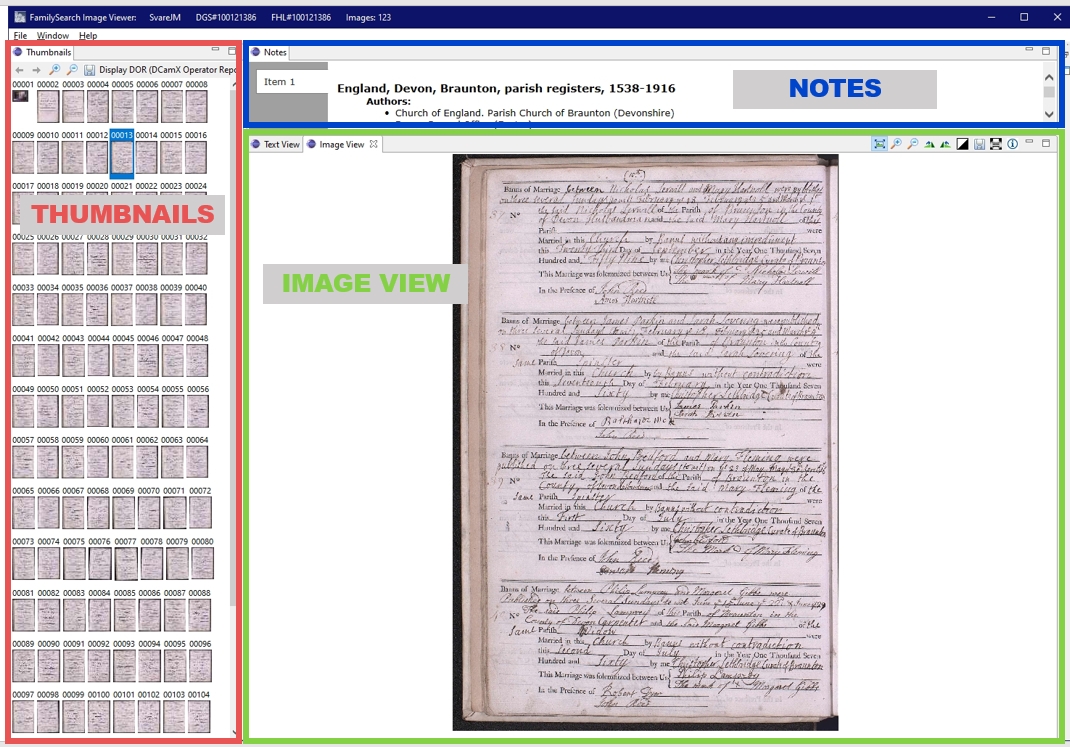 FamilySearch Image Viewer: SvareJM DGS#100121386 FHL#100121386 Images: 123
File Window Help
Thumbnails
Display DOR (DCamX Operator Repo
00001 00002 00003 00004 00005 00006 00007 00008
00009 00010 00011 00012 00013 00014 00015 00016
00017 00018 00019 00020 00021 00022 00023 00024
THUMBNAILS
00025 00026 00027 00028 00029 00030 00031 00032
00033 00034 00035 00036 00037 00038 00039 00040
00041 00042 00043 00044 00045 00046 00047 00048
00049 00050 00051 00052 00053 00054 00055 00056
00057 00058 00059 00060 00061 00062 00063 00064
00065 00066 00067 00068 00069 00070 00071 00072
00073 00074 00075 00076 00077 00078 00079 00080
00081 00082 00083 00084 00085 00086 00087 00088
00089 00090 00091 00092 00093 00094 00095 00096
00097 00098 00099 00100 00101 00102 00103 00104
Notes
Item 1
England, Devon, Braunton, parish registers, 1538-1916
Authors:
• Church of England. Parish Church of Braunton (Devonshire)
NOTES
Text View Image View
IMAGE VIEW
Banns of Marriage between Nicholas and Mary Hartnoll were published
on three several Sundays February
No the said Nicholas of the Parish of in the County
of Devon Husbandman and the said Mary Hartnoll of the
Parish were
Married in this Church by Banns
this Twenty third Day of September in the Year One Thousand Seven
Hundred and Fifty Nine by me Christopher Lethbridge Curate of Braunton
This Marriage was solemnized between Us The mark of Nicholas
The mark of Mary Hartnoll
In the Presence of John Reed
Banns of Marriage between James Parkin and Sarah Lovering were published
on three several Sundays February
No the said James Parkin of the Parish of Braunton in the County
of Devon and the said Sarah Lovering of the
same Parish Spinster were
Married in this Church by Banns without contradiction
this Seventeenth Day of February in the Year One Thousand Seven
Hundred and Sixty by me Christopher Lethbridge Curate of Braunton
This Marriage was solemnized between Us James Parkin
Sarah
In the Presence of
John Reed
Banns of Marriage between John Bedford and Mary Fleming were
published on three several Sundays
No the said John Bedford of the Parish of Braunton in the
County of Devon and the said Mary Fleming of the
same Parish Spinster were
Married in this Church by Banns without contradiction
this First Day of July in the Year One Thousand Seven
Hundred and Sixty by me Christopher Lethbridge Curate of Braunton
This Marriage was solemnized between Us
The Mark of Mary Fleming
In the Presence of John Reed
Fleming
Banns of Marriage between Philip Lamprey and Margaret Gibbs were
Published on three Several Sundays
No The said Philip Lamprey of the Parish of Braunton in the
County of Devon Carpenter and the said Margaret Gibbs of the
same Parish Widow were
Married in this Church by Banns without contradiction
this Second Day of July in the Year One Thousand Seven
Hundred and Sixty by me Christopher Lethbridge Curate of Braunton
This Marriage was solemnized between Us Philip Lamprey
The mark of Margaret Gibbs
In the Presence of Robert
John Reed